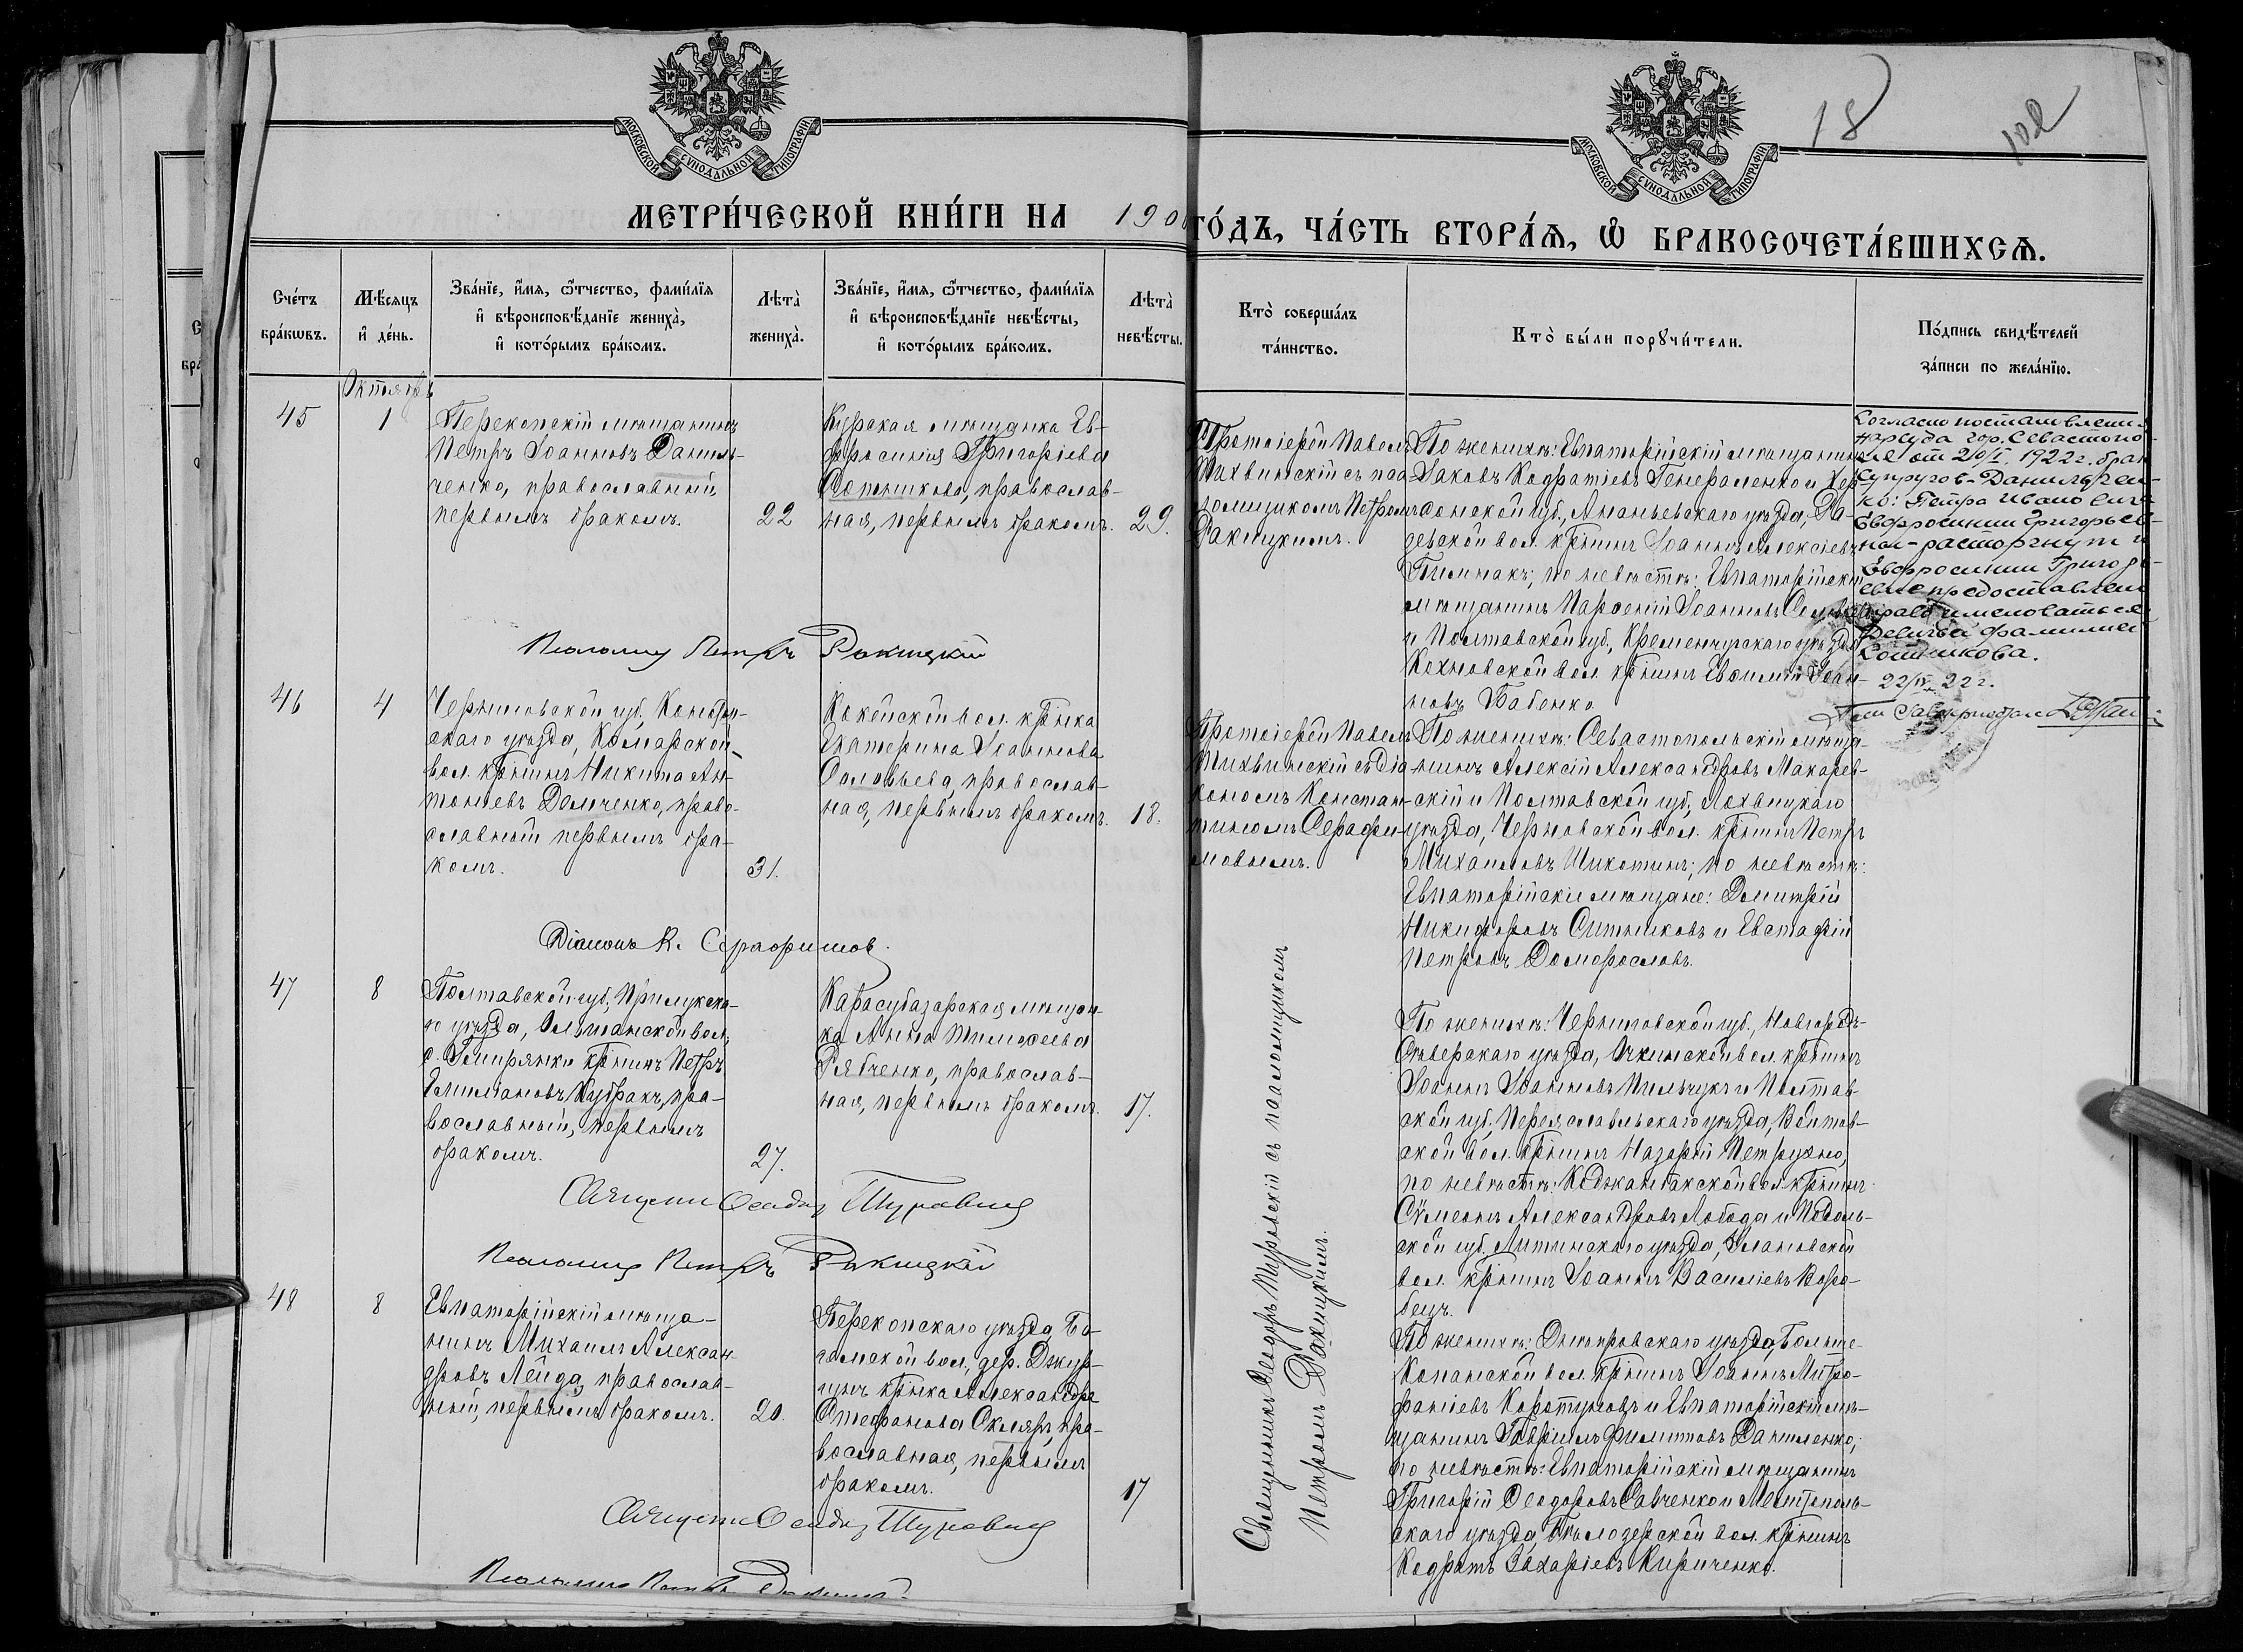 18
102
МОСКОВСКОЙ СѴНОДАЛЬНОЙ ТИПОГРАФІИ
МОСКОВСКОЙ СѴНОДАЛЬНОЙ ТИПОГРАФІИ
МЕТРИ́ЧЕСКОЙ КНИ́ГИ НА 190
ГО́ДЪ, ЧА́СТЬ ВТОРА́Ѧ, Ѡ҆ БРАКОСОЧЕТА́ВШИХСѦ.
Сче́тъ
бра́кѡвъ.
Мѣ́сѧцъ
и҆ де́нь.
Зва́нїе, и҆́мѧ, ѻ҆́тчество, фами́лїѧ
и҆ вѣроисповѣ́данїе жениха̀,
и҆ кото́рымъ бра́комъ.
Лѣ́та̀
жениха̀.
Зва́нїе, и҆́мѧ, ѻ҆́тчество, фами́лїѧ
и҆ вѣроисповѣ́данїе невѣ́сты,
и҆ кото́рымъ бра́комъ.
Лѣ́та̀
невѣ́сты.
Кто̀ соверша́лъ
та́инство.
Кто̀ бы́ли порꙋчи́тели.
По́дпись свидѣ́телей
за́писи по жела́нїю.
Октябрь
45
1
Перекопскій мѣщанинъ
Петръ Іоанновъ Даниль-
ченко, православный,
первымъ бракомъ.
22
Курская мѣщанка Ев-
фросинія Григоріева
Сотникова, православ-
ная, первымъ бракомъ.
29.
Протоіерей Павелъ
Тихвинскій съ пса-
ломщикомъ Петромъ
Ракицкимъ.
По женихѣ: Евпаторійскій мѣщанинъ
Іаковъ Кодратіевъ Генераленко и Хер-
сонской губ., Ананьевскаго уѣзда,
вол. кр̃нинъ Іоаннъ Алексіевъ
по невѣстѣ: Евпаторійскій
мѣщанинъ Парѳеній Іоанновъ
и Полтавской губ., Кременчугскаго уѣзда
Кохновской вол. кр̃нинъ Евѳимій Іоан-
новъ Бабенко
Согласно постановления
нарсуда гор. Севастопо-
ля от 20/I, 1922 г. брак
супругов - Данильчен-
ко: Петра Ивановича
Евфросинии Григорьев-
ной - расторгнут и
Евфросинии Григорь-
евне предоставлено
право именоваться
девичьей фамилией
Сотникова.
22/IV 22 г.
Псаломщ Петръ Ракицкій
46
4
Черниговской губ., Конотоп-
скаго уѣзда,
вол. кр̃нинъ Никита Ан-
тоніевъ Демченко, право-
славный первымъ бра-
комъ.
31.
вол. кр̃нка
Екатерина Іоаннова
Соловьева, православ-
ная, первымъ бракомъ.
18.
Протоіерей Павелъ
Тихвинскій съ діа-
кономъ Констан-
тиномъ Серафи-
мовымъ.
По женихѣ: Севастопольскій мѣща-
нинъ Алексій Александровъ Макарев-
скій и Полтавской губ., Лохвицкаго
уѣзда, Чернохской вол. кр̃нинъ Петръ
Михаиловъ Шикотинъ; по невѣстѣ:
Евпаторійскіе мѣщане: Димитрій
Никифоровъ Ситниковъ и Евстафій
Петровъ Доморословъ.
Діаконъ К. Серафимов.
47
8
Полтавской губ., Прилукска-
го уѣзда, Ольшанской вол.,
кр̃нинъ Петръ
Емиліановъ Кубракъ, пра-
вославный, первымъ
бракомъ.
27.
Карасубазарская мѣщан-
ка Анна Тимоѳеева
Рябченко, православ-
ная, первымъ бракомъ.
17.
Священникъ Ѳеодоръ Туровскій съ псаломщикомъ
Петромъ Ракицкимъ.
По женихѣ: Черниговской губ., Новгородъ-
Сѣверскаго уѣзда, вол. кр̃нинъ
Іоаннъ Іоанновъ Пильчукъ и Полтав-
ской губ., Переяславльскаго уѣзда, Войтов-
ской вол. кр̃нинъ Назарій Петрухно,
по невѣстѣ: вол. кр̃нинъ
Сѵмеонъ Александровъ Лобода и Подоль-
ской губ. Литинскаго уѣзда, Улановской
вол. кр̃нинъ Іоаннъ Василіевъ Воро-
бецъ.
Псаломщ Петръ Ракицкій
48
8
Евпаторійскій мѣща-
нинъ Михаилъ Алексан-
дровъ Лейда, православ-
ный, первымъ бракомъ.
20.
Перекопскаго уѣзда, Бо-
гемской вол., дер. Джур-
чи кр̃нка Александра
Стефанова Скляръ, пра-
вославная, первымъ
бракомъ.
17
По женихѣ: Днѣпровскаго уѣзда, Больше-
Копанской вол. кр̃нинъ Іоаннъ Митро-
фаніевъ Коротуновъ и Евпаторійскій мѣ-
щанинъ Гавріилъ Филипповъ Даниленко,
по невѣстѣ: Евпаторійскій мѣщанинъ
Григорій Ѳеодоровъ Савченко и Мелитополь-
скаго уѣзда, Бѣлозерской вол. кр̃нинъ
Кодратъ Захаріевъ Кириченко.